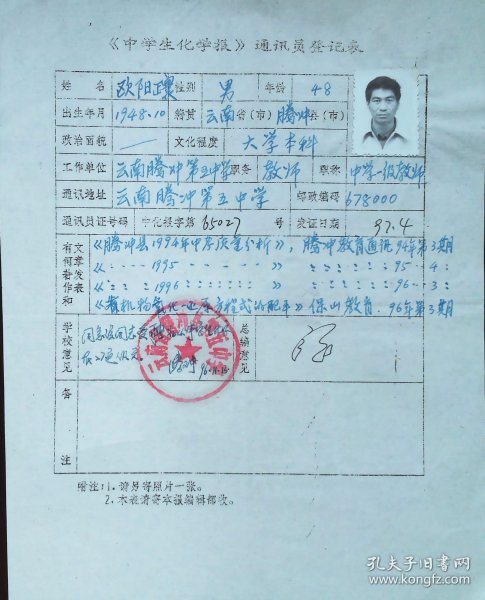 《中学生化学报》通讯员登记表
姓名 欧阳 性别 男 年龄 48
出生年月 1948.10 籍贯 云南省(市)腾冲县(市)
政治面貌 — 文化程度 大学本科
工作单位 云南腾冲第五中学 职务 教师 职称 中学一级教师
通讯地址 云南腾冲第五中学 邮政编码 678000
通讯员证号码 中化报字第65027号 发证日期 97.4
有何著作和文章发表
《腾冲县1994年中考质量分析》,腾冲教育通讯94年第3期
《〃 : 1995 〃 》 〃 : : : : 95 : 4 :
《: : 1996 : : : : 》 : : : : : 96 : 3 :
《有机物氧化-还原方程式的配平》保山教育.96年第3期
学校意见 同意
96.11.18.
总编意见
备注
附注:1.请另寄照片一张。
2.本表请寄本报编辑部收。
孔夫子旧书网
www.kongfz.com